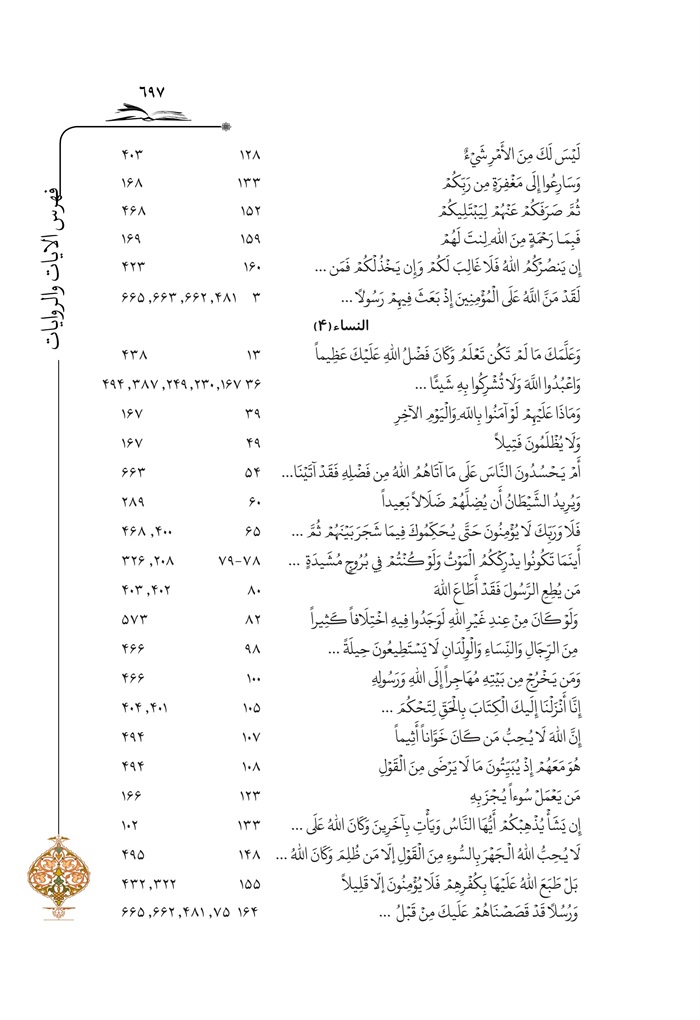 ۶۹۷
فهرس الآيات والروايات
لَيْسَ لَكَ مِنَ الأَمْرِ شَيْءٌ ۱۲۸ ۴۰۳
وَسَارِعُوا إِلَى مَغْفِرَةٍ مِن رَبِّكُمْ ۱۳۳ ۱۶۸
ثُمَّ صَرَفَكُمْ عَنْهُمْ لِيَبْتَلِيكُمْ ۱۵۲ ۴۶۸
فَبِمَا رَحْمَةٍ مِنَ اللهِ لِنتَ لَهُمْ ۱۵۹ ۱۶۹
إِن يَنصُرْكُمُ اللهُ فَلَا غَالِبَ لَكُمْ وَإِن يَخْذُلْكُمْ فَمَن ... ۱۶۰ ۴۲۳
لَقَدْ مَنَّ اللَّهُ عَلَى الْمُؤْمِنِينَ إِذْ بَعَثَ فِيهِمْ رَسُولًا ... ۳ ۴۸۱, ۶۶۲, ۶۶۳, ۶۶۵
النساء(۴)
وَعَلَّمَكَ مَا لَمْ تَكُن تَعْلَمُ وَكَانَ فَضْلُ اللهِ عَلَيْكَ عَظِيماً ۱۳ ۴۳۸
وَاعْبُدُوا اللَّهَ وَلَا تُشْرِكُوا بِهِ شَيئًا ... ۳۶ ۱۶۷, ۲۳۰, ۲۴۹, ۳۸۷, ۴۹۴
وَمَاذَا عَلَيْهِمْ لَوْ آمَنُوا بِاللهِ وَالْيَوْمِ الآخِرِ ۳۹ ۱۶۷
وَلَا يُظْلَمُونَ فَتِيلاً ۴۹ ۱۶۷
أَمْ يَحْسُدُونَ النَّاسَ عَلَى مَا آتَاهُمُ اللهُ مِن فَضْلِهِ فَقَدْ آتَيْنَا... ۵۴ ۶۶۳
وَيُرِيدُ الشَّيْطَانُ أَن يُضِلَّهُمْ ضَلَالاً بَعِيداً ۶۰ ۲۸۹
فَلَا وَرَبِّكَ لَا يُؤْمِنُونَ حَتَّى يُحَكِّمُوكَ فِيمَا شَجَرَ بَيْنَهُمْ ثُمَّ ... ۶۵ ۴۰۰, ۴۶۸
أَيْنَمَا تَكُونُوا يدْرِككُّمُ الْمَوْتُ وَلَوْ كُنْتُمْ فِي بُرُوجٍ مُشَيدَةٍ ... ۷۸-۷۹ ۲۰۸, ۳۲۶
مَن يُطِعِ الرَّسُولَ فَقَدْ أَطَاعَ اللهَ ۸۰ ۴۰۲, ۴۰۳
وَلَوْ كَانَ مِنْ عِندِ غَيْرِ اللهِ لَوَجَدُوا فِيهِ اخْتِلَافاً كَثِيراً ۸۲ ۵۷۳
مِنَ الرِّجَالِ وَالنِّسَاءِ وَالْوِلْدَانِ لَا يَسْتَطِيعُونَ حِيلَةً ... ۹۸ ۴۶۶
وَمَن يَخْرُجْ مِن بَيْتِهِ مُهَاجِراً إِلَى اللهِ وَرَسُولِهِ ۱۰۰ ۴۶۶
إِنَّا أَنْزَلْنَا إِلَيكَ الْكِتَابَ بِالْحَقِّ لِتَحْكُمَ ... ۱۰۵ ۴۰۱, ۴۰۴
إِنَّ اللهَ لَا يُحِبُّ مَن كَانَ خَوَّاناً أَثِيماً ۱۰۷ ۴۹۴
هُوَ مَعَهُمْ إِذْ يُبَيِّتُونَ مَا لَا يَرْضَى مِنَ الْقَوْلِ ۱۰۸ ۴۹۴
مَن يَعْمَلْ سُوءاً يُجْزَ بِهِ ۱۲۳ ۱۶۶
إِن يَشَأْ يُذْهِبْكُمْ أَيُّهَا النَّاسُ وَيَأْتِ بِآخَرِينَ وَكَانَ اللهُ عَلَى ... ۱۳۳ ۱۰۲
لَا يُحِبُّ اللهُ الْجَهْرَ بِالسُّوءِ مِنَ الْقَوْلِ إِلَّا مَن ظُلِمَ وَكَانَ اللهُ ... ۱۴۸ ۴۹۵
بَلْ طَبَعَ اللهُ عَلَيْهَا بِكُفْرِهِمْ فَلَا يُؤْمِنُونَ إِلَّا قَلِيلاً ۱۵۵ ۳۲۲, ۴۳۲
وَرُسُلًا قَدْ قَصَصْنَاهُمْ عَلَيكَ مِنْ قَبْلُ ... ۱۶۴ ۷۵, ۴۸۱, ۶۶۲, ۶۶۵